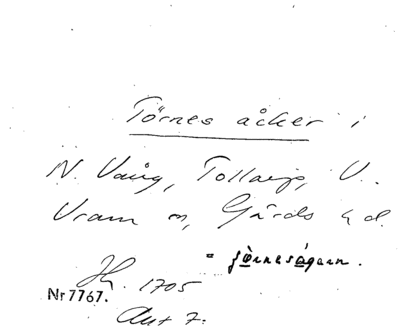 Törnes åcker i
N. Vång, Tollarp, V.
Vram s, Gärds hd.
= Jö̱rnesågarn.
Jb. 1705
Nr 7767.
Ant 7.